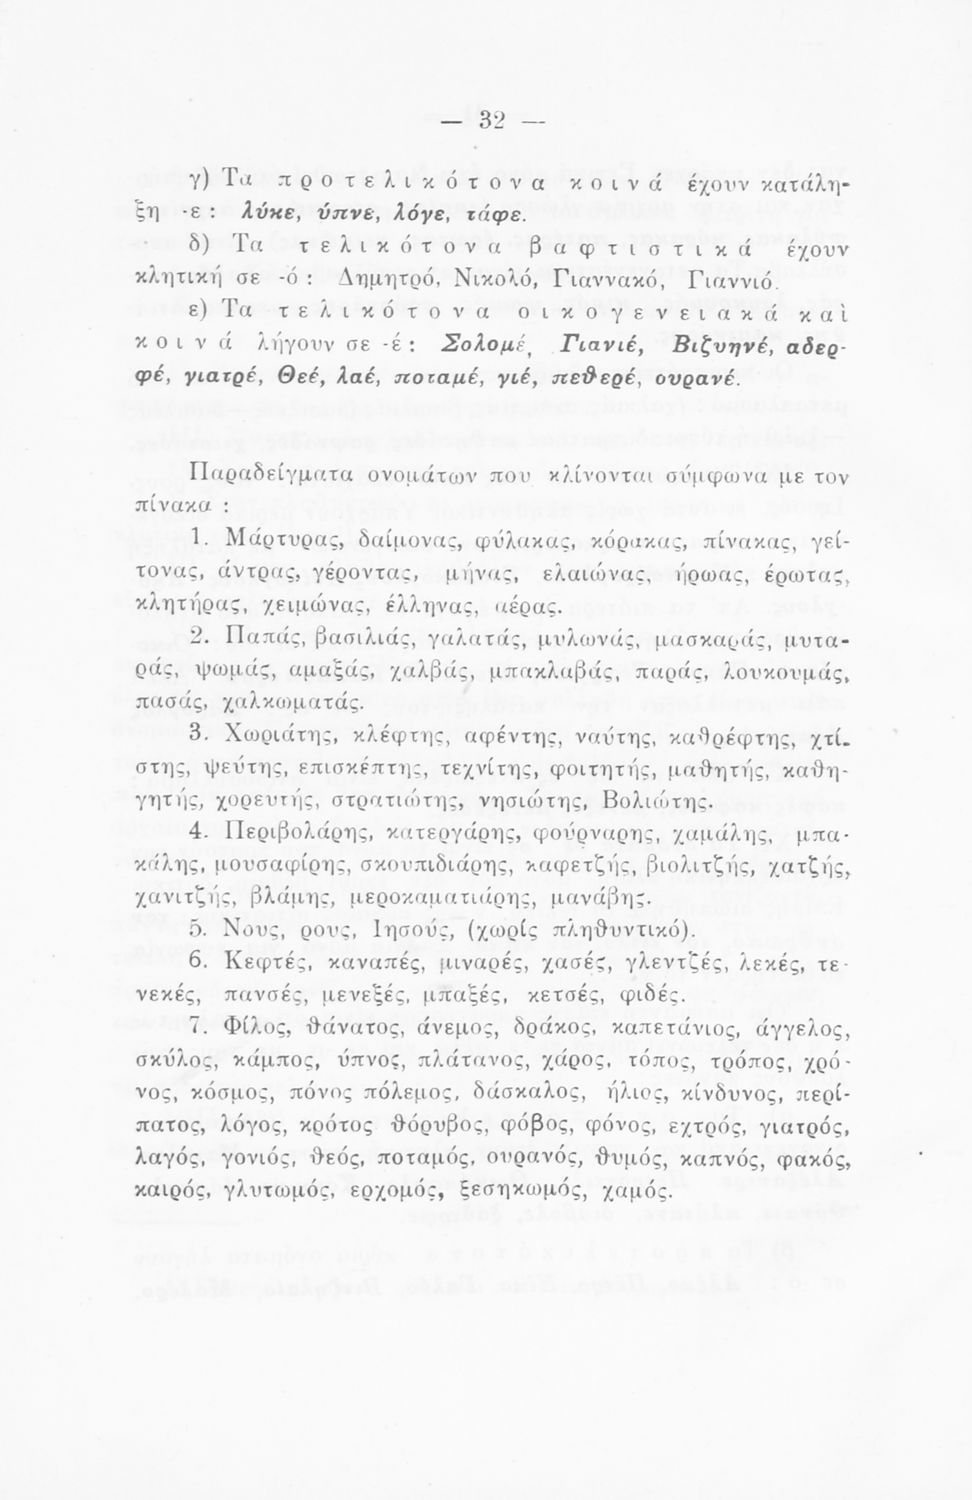 — 32 —
γ) Τα προτελικότονα κοινά έχουν κατάλη-
ξη -ε : λύκε, ύπνε, λόγε, τάφε.
δ) Τα τελικότονα βαφτιστικά έχουν
κλητική σε -ό : Δημητρό, Νικολό, Γιαννακό, Γιαννιό.
ε) Τα τελικότονα οικογενειακά καὶ
κοινά λήγουν σε -έ : Σολομέ, Γιανιέ, Βιζυηνέ, αδερ-
φέ, γιατρέ, Θεέ, λαέ, ποταμέ, γιέ, πεθερέ, ουρανέ.
Παραδείγματα ονομάτων που κλίνονται σύμφωνα με τον
πίνακα :
1. Μάρτυρας, δαίμονας, φύλακας, κόρακας, πίνακας, γεί-
τονας, άντρας, γέροντας, μήνας, ελαιώνας, ήρωας, έρωτας,
κλητήρας, χειμώνας, έλληνας, αέρας.
2. Παπάς, βασιλιάς, γαλατάς, μυλωνάς, μασκαράς, μυτα-
ράς, ψωμάς, αμαξάς, χαλβάς, μπακλαβάς, παράς, λουκουμάς,
πασάς, χαλκωματάς.
3. Χωριάτης, κλέφτης, αφέντης, ναύτης, καθρέφτης, χτί-
στης, ψεύτης, επισκέπτης, τεχνίτης, φοιτητής, μαθητής, καθη-
γητής, χορευτής, στρατιώτης, νησιώτης, Βολιώτης.
4. Περιβολάρης, κατεργάρης, φούρναρης, χαμάλης, μπα-
κάλης, μουσαφίρης, σκουπιδιάρης, καφετζής, βιολιτζής, χατζής,
χανιτζής, βλάμης, μεροκαματιάρης, μανάβης.
5. Νους, ρους, Ιησούς, (χωρίς πληθυντικό).
6. Κεφτές, καναπές, μιναρές, χασές, γλεντζές, λεκές, τε-
νεκές, πανσές, μενεξές, μπαξές, κετσές, φιδές.
7. Φίλος, θάνατος, άνεμος, δράκος, καπετάνιος, άγγελος,
σκύλος, κάμπος, ύπνος, πλάτανος, χάρος, τόπος, τρόπος, χρό-
νος, κόσμος, πόνος πόλεμος, δάσκαλος, ήλιος, κίνδυνος, περί-
πατος, λόγος, κρότος θόρυβος, φόβος, φόνος, εχτρός, γιατρός,
λαγός, γονιός, θεός, ποταμός, ουρανός, θυμός, καπνός, φακός,
καιρός, γλυτωμός, ερχομός, ξεσηκωμός, χαμός.